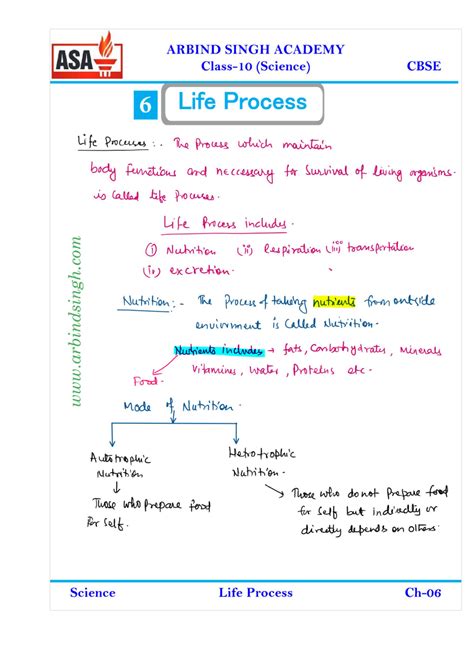 ASA
ARBIND SINGH ACADEMY
Class-10 (Science) CBSE
6 Life Process
Life Processes :- The Process which maintain
body functions and neccessary for survival of living organisms.
is called life processes.
Life Process includes.
(i) Nutrition (ii) Respiration (iii) transportation
(iv) excretion.
Nutrition :- The Process of taking nutrients from outside
environment is called Nutrition.
Nutrients includes → fats, Carbohydrates, Minerals
Vitamines, water, Proteins etc.
Food.
Mode of Nutrition.
Autotrophic Hetrotrophic
Nutrition Nutrition.
Those who prepare food
for self.
Those who do not prepare food
for self but indirectly or
directly depends on others.
www.arbindsingh.com
Science Life Process Ch-06